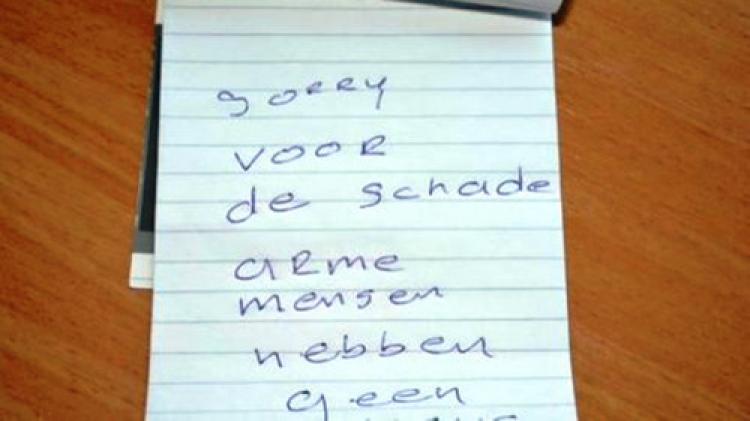 sorry
voor
de schade
arme
mensen
hebben
geen